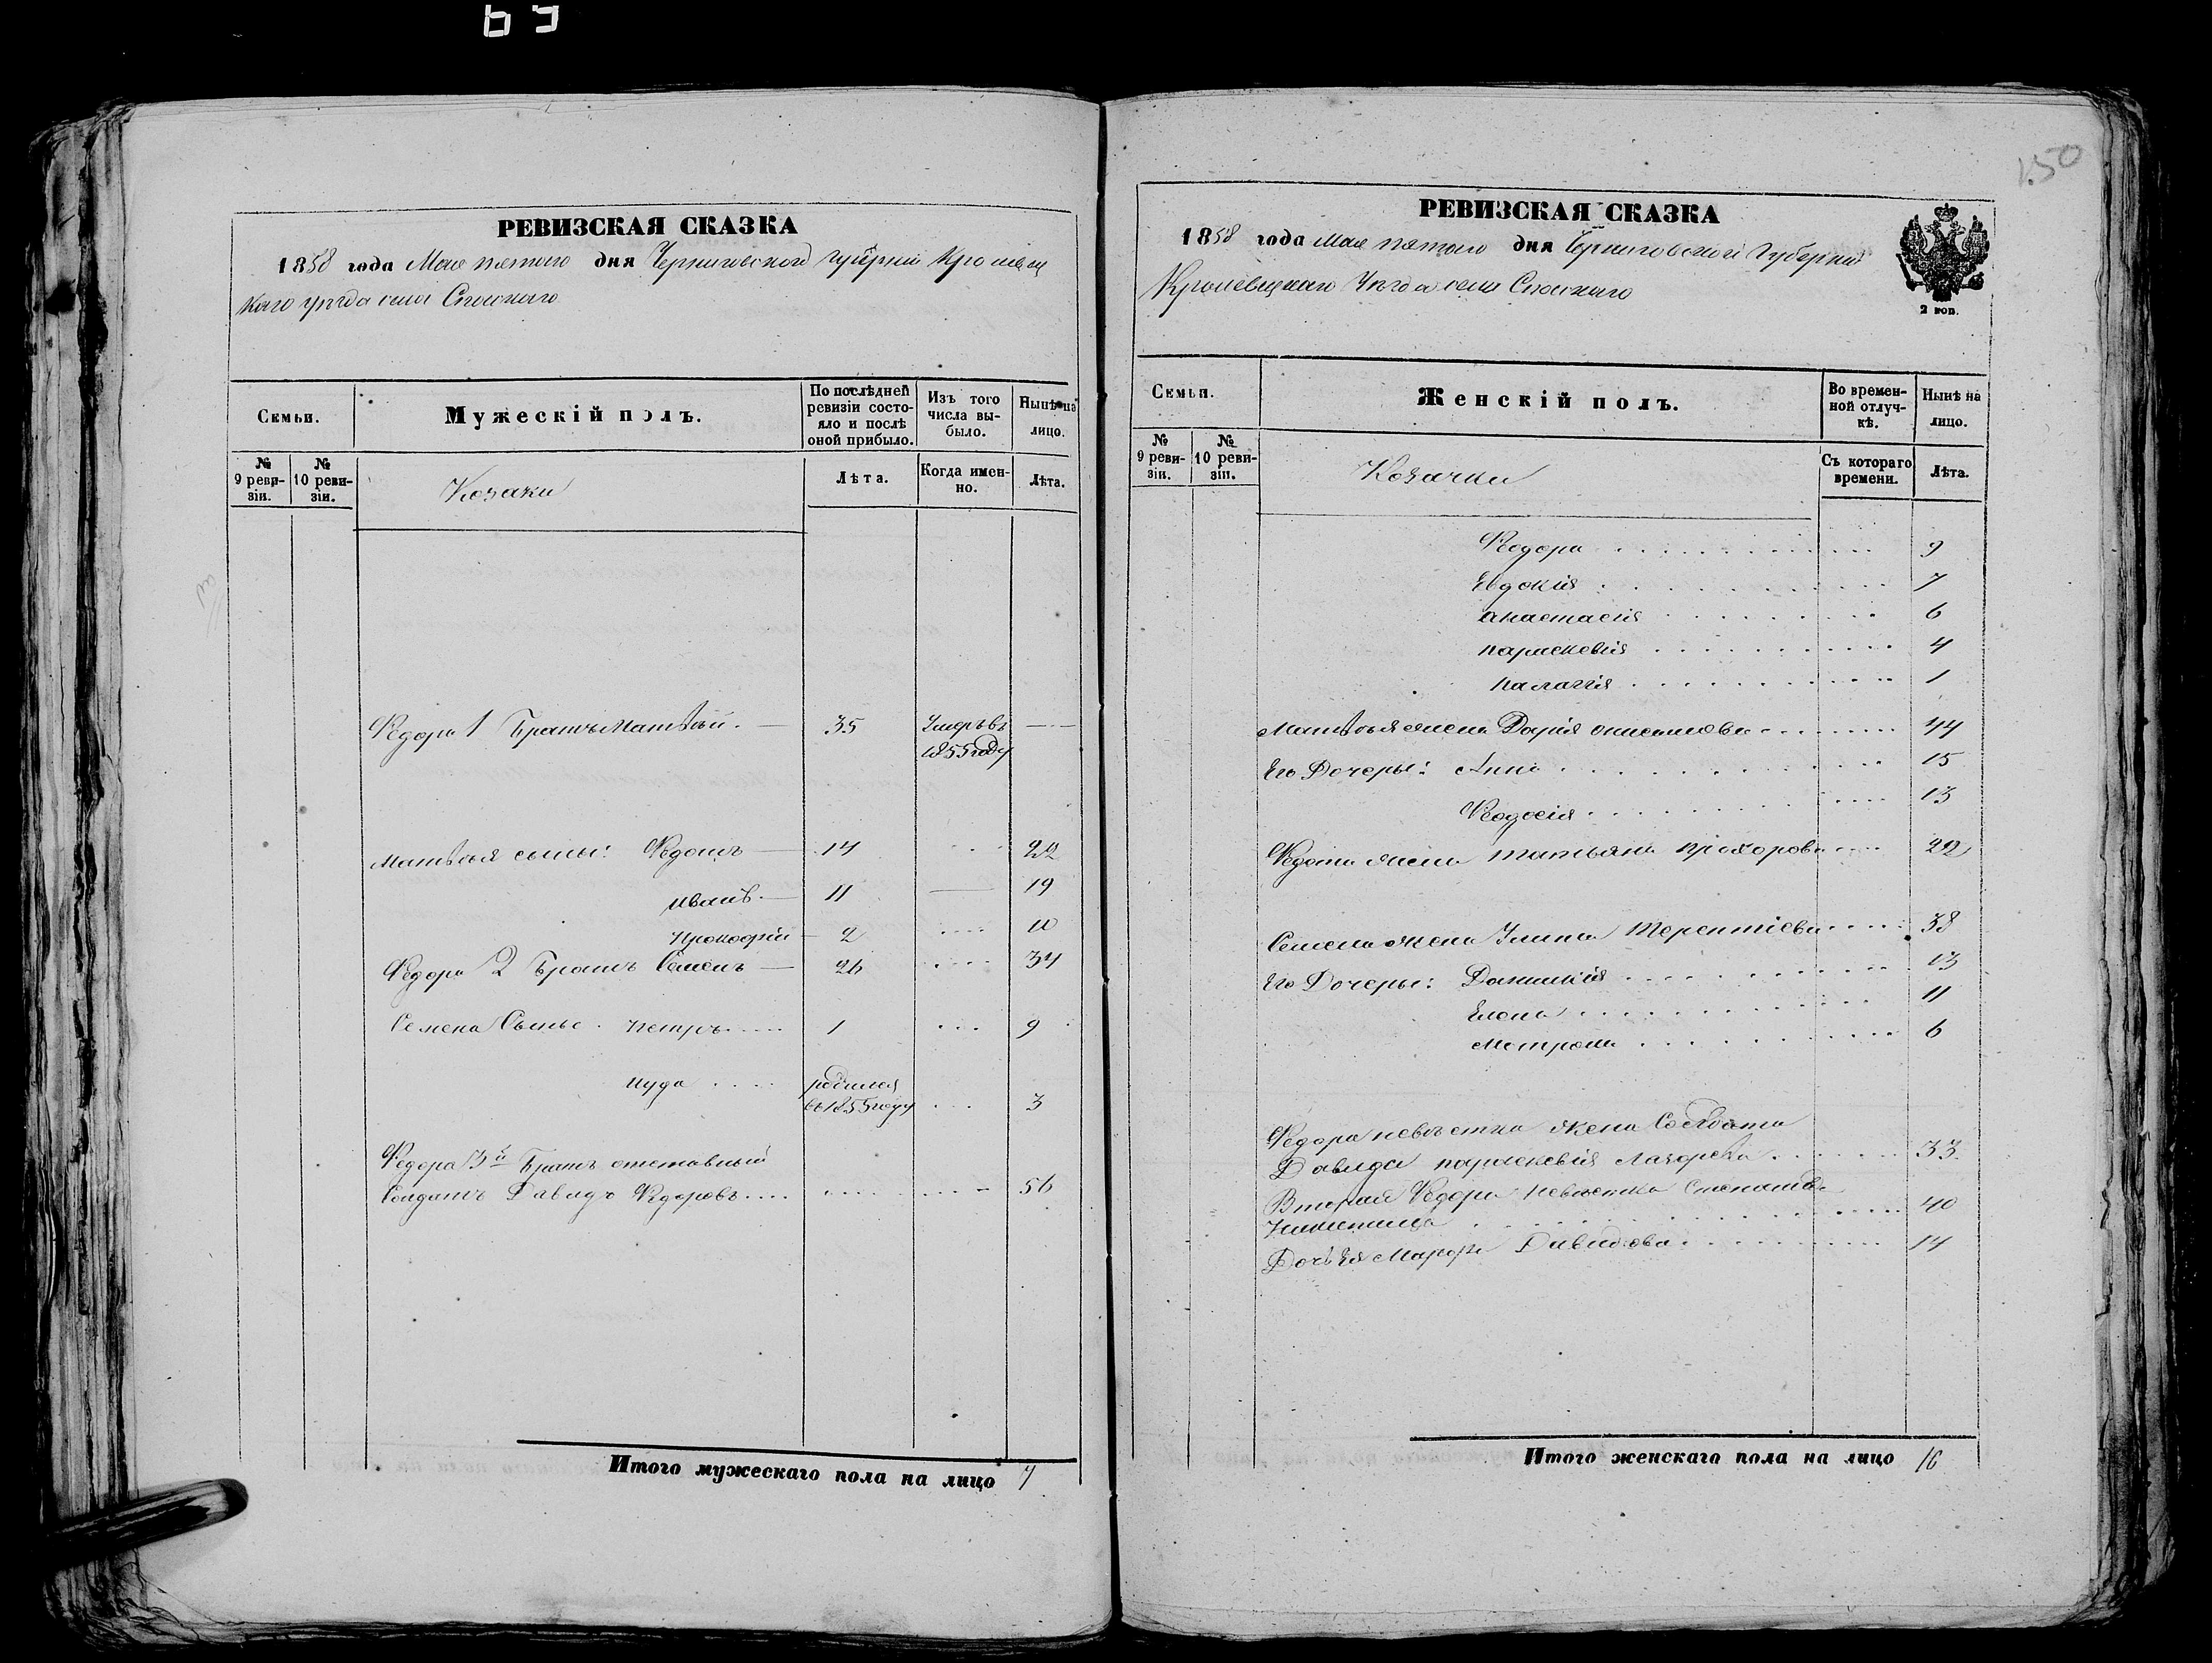 65
РЕВИЗСКАЯ СКАЗКА
1858 года Мая пятого дня Черниговской губерніи Кролевец
каго уѣзда села Спаскаго
Семьи.
Мужескій полъ.
По послѣдней ревизіи состо-
яло и послѣ
оной прибыло.
Изъ того
числа вы-
было.
Нынѣ на
лицо.
№
9 реви-
зіи.
№
10 реви-
зіи.
Козаки
Лѣта.
Когда имен-
но.
Лѣта.
Федора 1 Братъ Матвѣй. 35 Умеръ въ
1855 году
Матвѣя сыны: Федотъ 14 22
Иванъ 11 19
Прокофій 2 10
Федора 2 Братъ Семенъ 26 34
Семена Сыны. Петръ 1 9
Иуда родился
въ 1855 году 3
Федора 3й Братъ отставный
Солдатъ Давидъ Федоровъ 56
Итого мужескаго пола на лицо 7
150
РЕВИЗСКАЯ СКАЗКА
1858 года Мая пятого дня Черниговской Губерніи
Кролевецкаго Уѣзда села Спаскаго
2 коп.
Семьи.
Женскій полъ.
Во времен-
ной отлуч-
кѣ.
Нынѣ на
лицо.
№
9 реви-
зіи.
№
10 реви-
зіи.
Козачки
Съ котораго
времени.
Лѣта.
Федора 9
Евдокія 7
Анастасія 6
Параскевія 4
Палагія 1
Матвѣя жена Дарія 44
Его Дочеры: Анна 15
Феодосія 13
Федота жена Татьяна Прохорова 22
Семена жена Улита Терентіева 38
Его Дочеры: Домникія 13
Елена 11
Мотрона 6
Федора невѣстка жена Солдата
Давида Параскевія Лазорева 33
Вторая Федора невѣстка Степанида
40
Дочь Ея Марфа Давидова 14
Итого женскаго пола на лицо 16